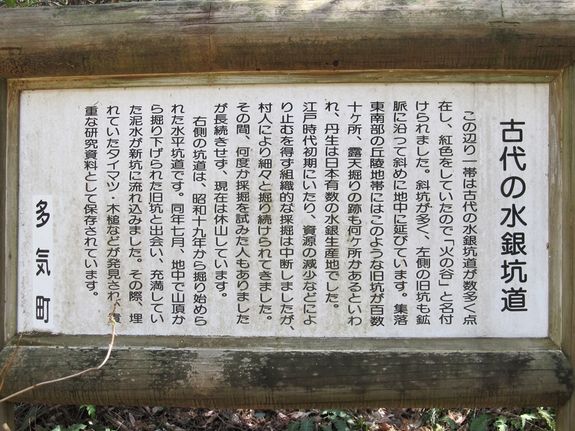 古代の水銀坑道
この辺り一帯は古代の水銀坑道が数多く点
在し、紅色をしていたので「火の谷」と名付
けられました。斜坑が多く、左側の旧坑も鉱
脈に沿って斜めに地中に延びています。集落
東南部の丘陵地帯にはこのような旧坑が百数
十ヶ所、露天掘りの跡も何ヶ所かあるといわ
れ、丹生は日本有数の水銀生産地でした。
江戸時代初期にいたり、資源の減少などによ
り止むを得ず組織的な採掘は中断しましたが、
村人により細々と掘り続けられてきました。
その間、何度か採掘を試みた人もありました
が長続きせず、現在は休山しています。
右側の坑道は、昭和十九年から掘り始めら
れた水平坑道です。同年七月、地中で山頂か
ら掘り下げられた旧坑と出会い、充満してい
た泥水が新坑に流れ込みました。その際、埋
れていたタイマツ・木槌などが発見され、貴
重な研究資料として保存されています。
多気町